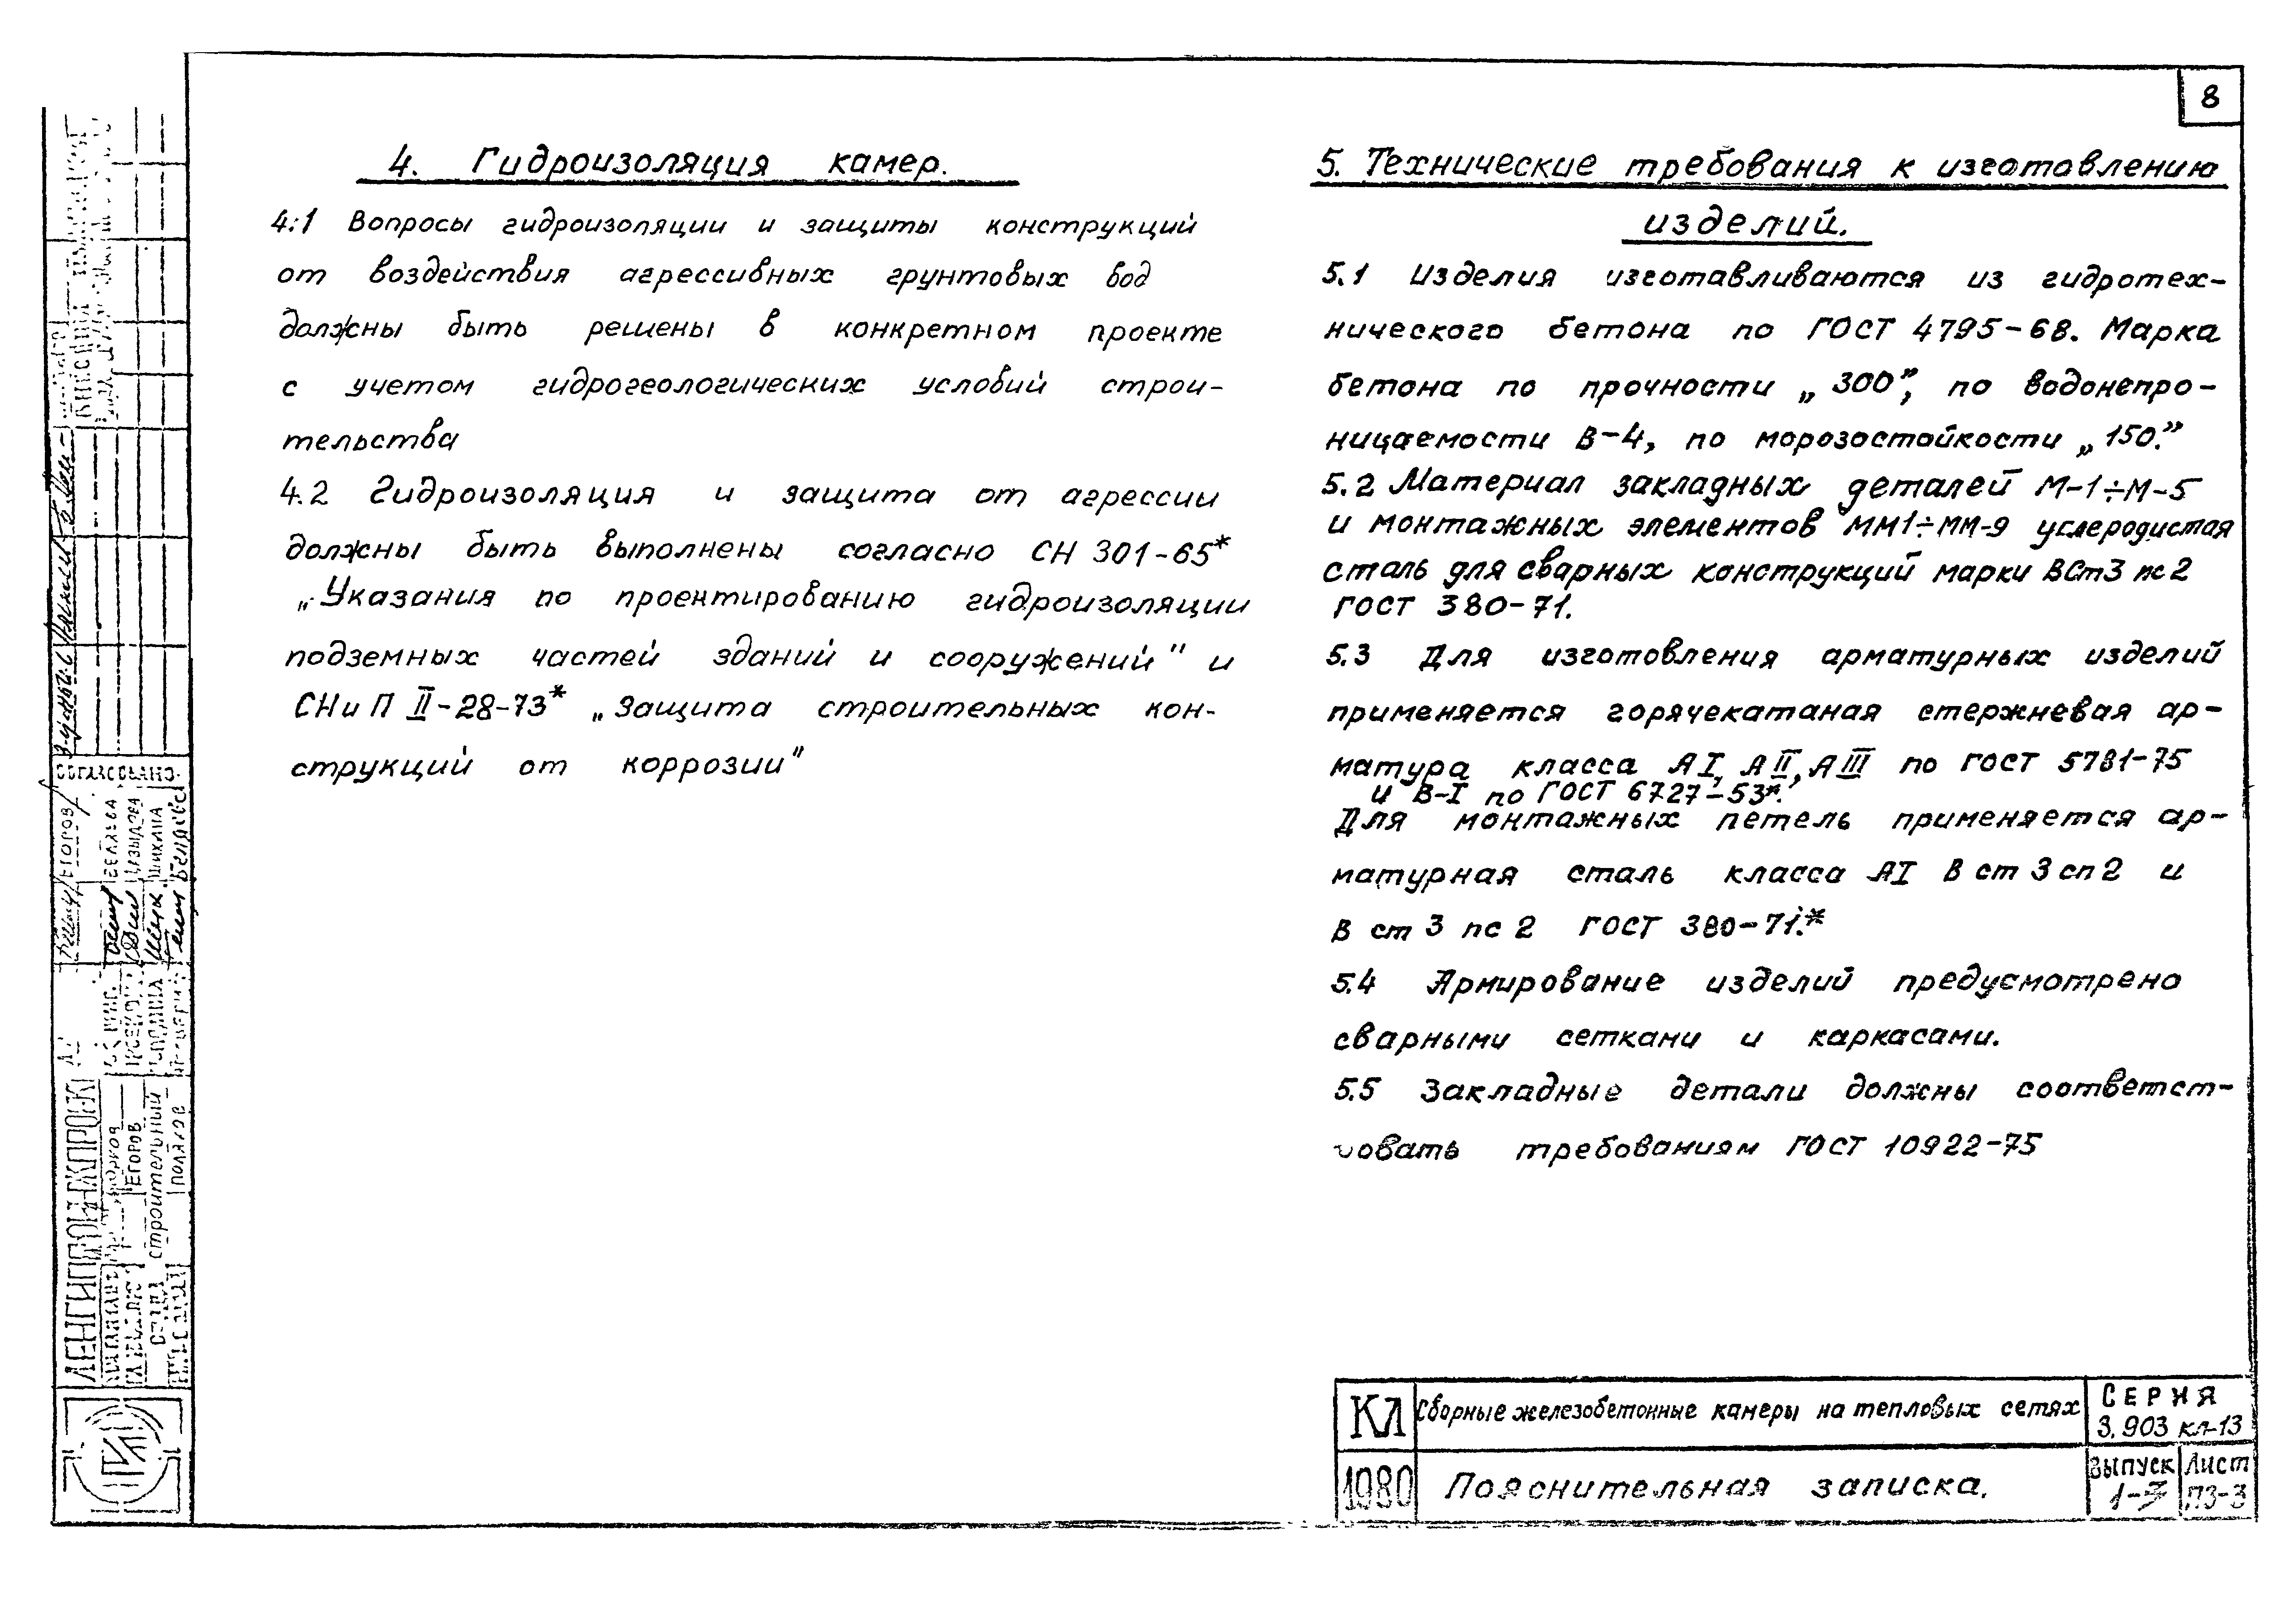 8
4. Гидроизоляция камер.
4.1 Вопросы гидроизоляции и защиты конструкций
от воздействия агрессивных грунтовых вод
должны быть решены в конкретном проекте
с учетом гидрогеологических условий строи-
тельства
4.2 Гидроизоляция и защита от агрессии
должны быть выполнены согласно СН 301-65*
„Указания по проектированию гидроизоляции
подземных частей зданий и сооружений" и
СНиП II-28-73* „Защита строительных кон-
струкций от коррозии"
5. Технические требования к изготовлению
изделий.
5.1 Изделия изготавливаются из гидротех-
нического бетона по ГОСТ 4795-68. Марка
бетона по прочности „300”, по водонепро-
ницаемости В-4, по морозостойкости „150.”
5.2 Материал закладных деталей М-1÷М-5
и монтажных элементов ММ1÷ММ-9 углеродистая
сталь для сварных конструкций марки ВСт3 пс2
ГОСТ 380-71.
5.3 Для изготовления арматурных изделий
применяется горячекатаная стержневая ар-
матура класса АI, АII, АIII по ГОСТ 5781-75
и В-I по ГОСТ 6727-53*.
Для монтажных петель применяется ар-
матурная сталь класса АI В ст 3 сп 2 и
В ст 3 пс 2 ГОСТ 380-71.*
5.4 Армирование изделий предусмотрено
сварными сетками и каркасами.
5.5 Закладные детали должны соответст-
вовать требованиям ГОСТ 10922-75
КЛ Сборные железобетонные камеры на тепловых сетях Серия
3.903 кл-13
1980 Пояснительная записка. Выпуск Лист
ПЗ-3
СОГЛАСОВАНО
ЕГОРОВ
БЕЛЯЕВА
ШИХИНА
ЕГОРОВ
строительный
ПОЛЯКОВ